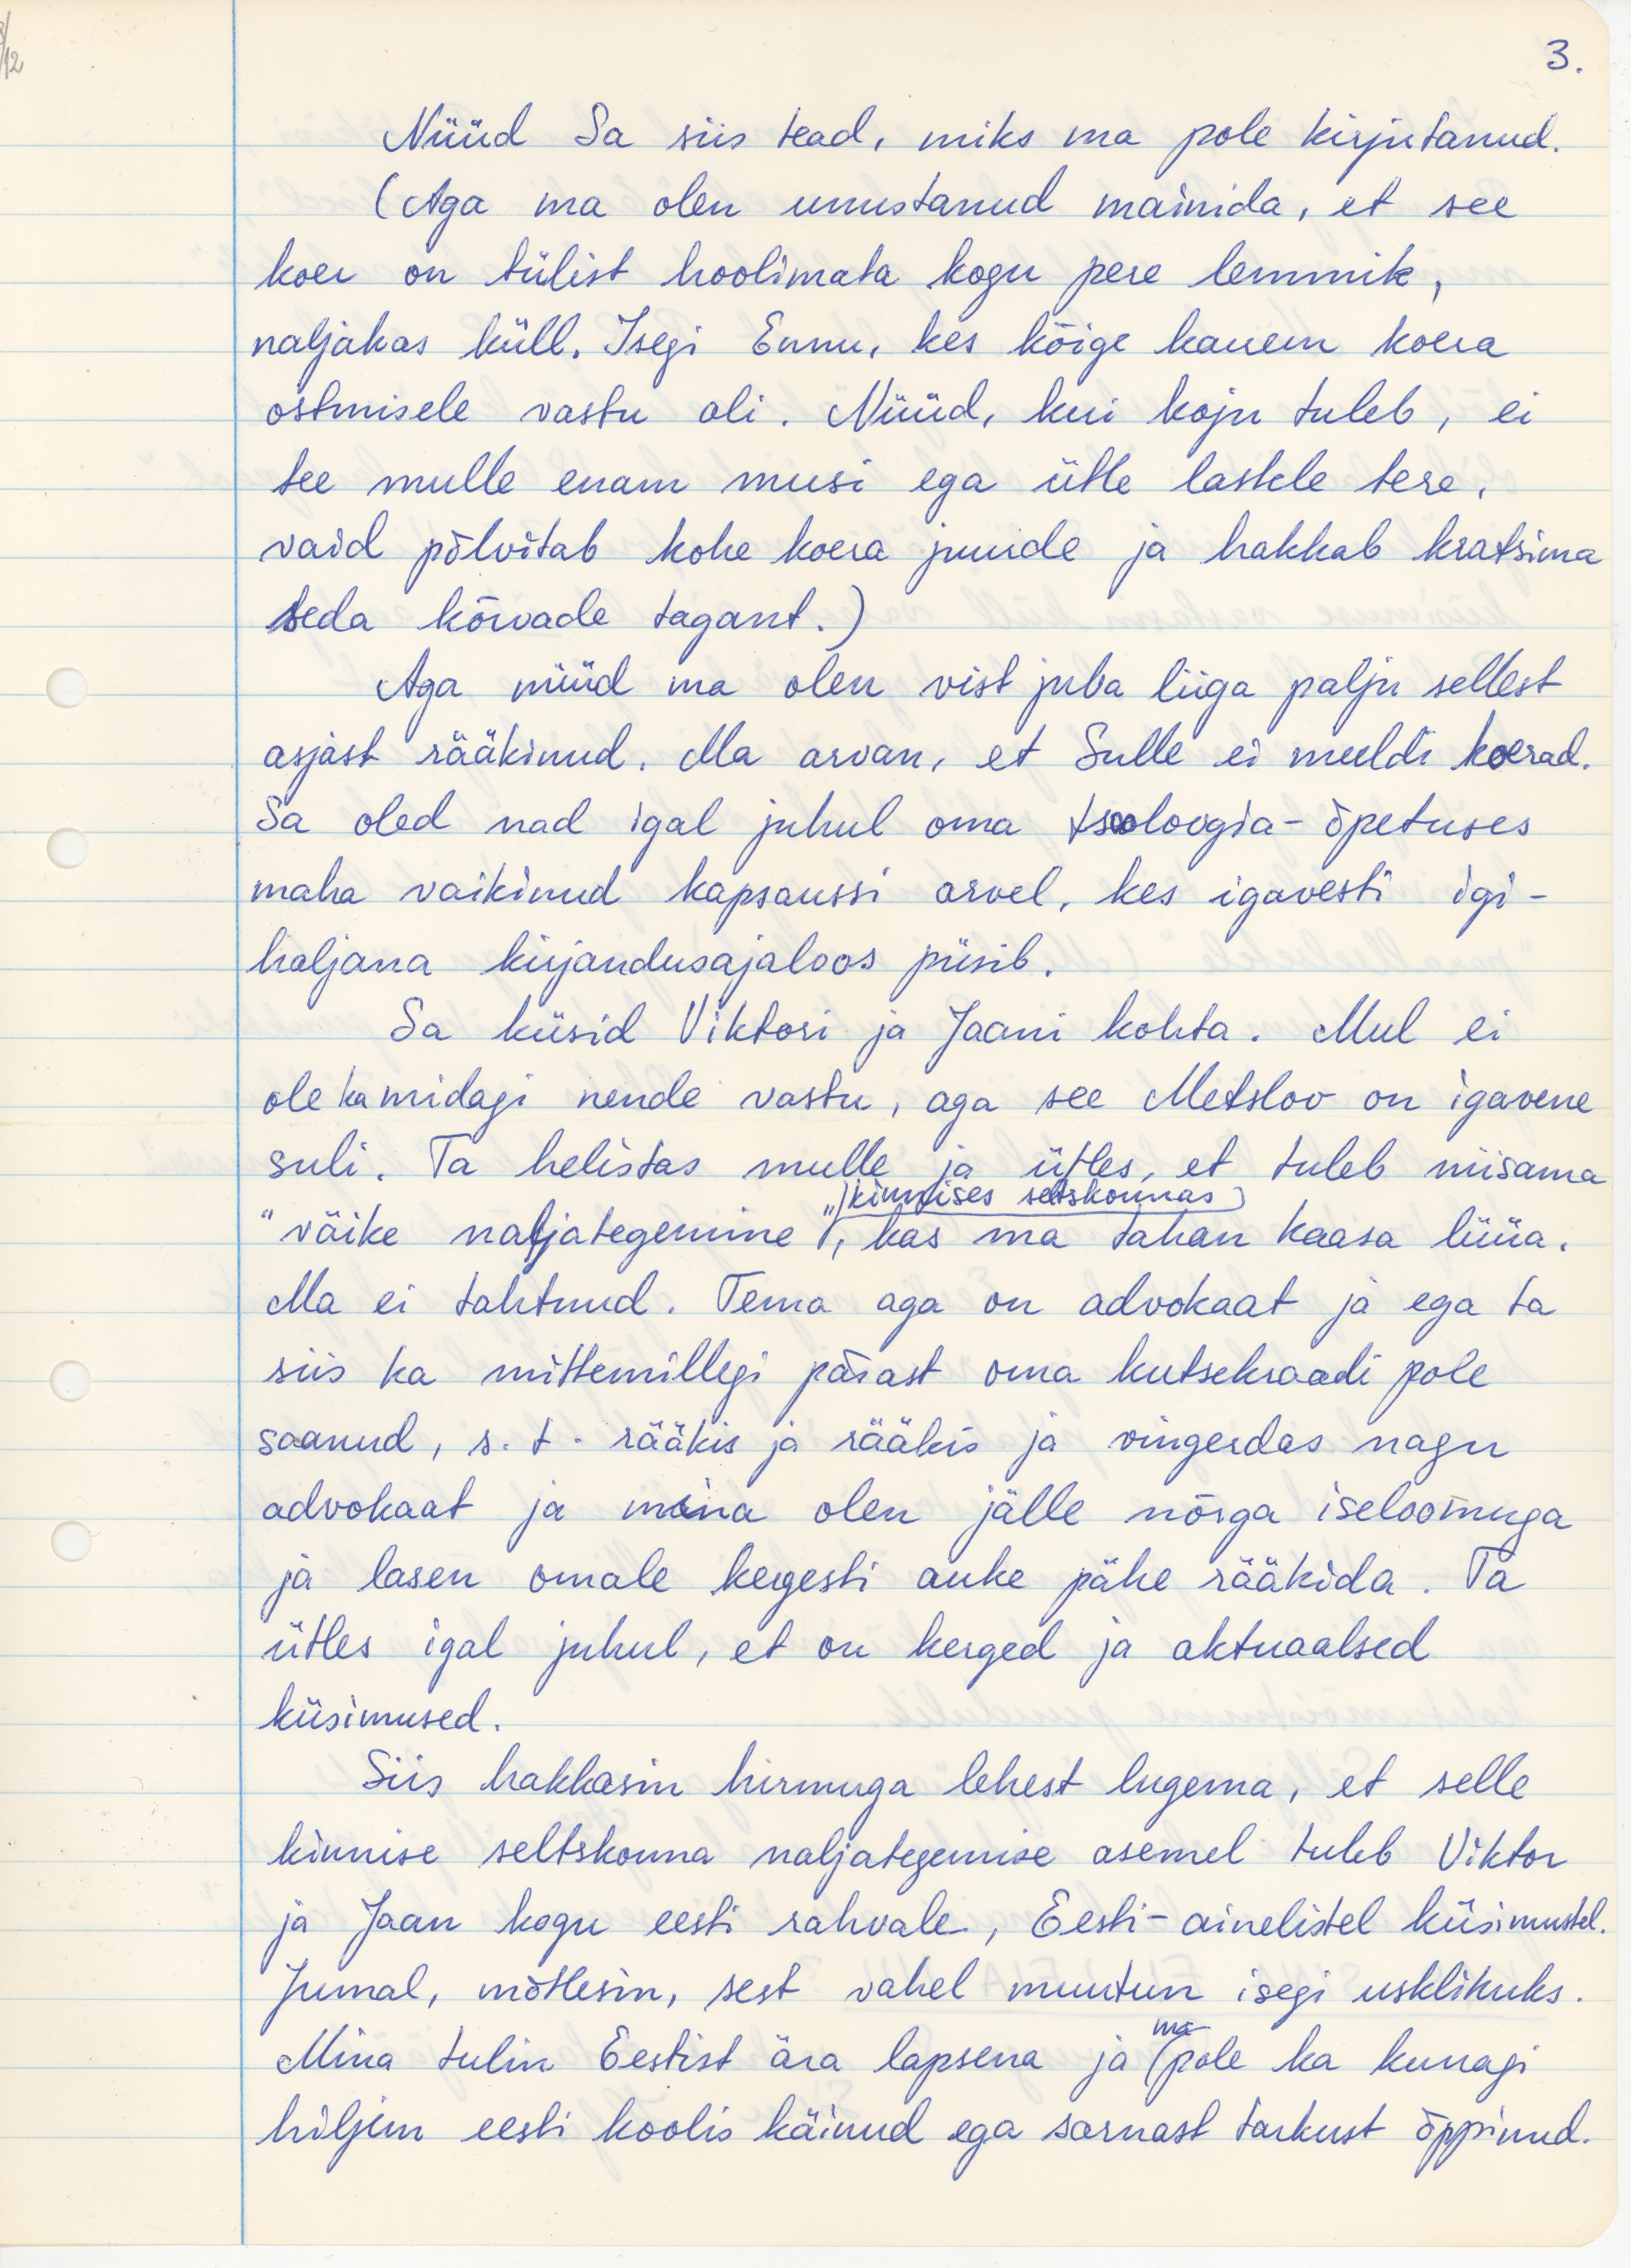 3.
Nüüd Sa siis tead, miks ma pole kirjutanud.
(Aga ma olen unustanud mainida, et see
koer on tülist hoolimata kogu pere lemmik,
naljakas küll. Isegi Ennu, kes kõige kauem koera
ostmisele vastu oli. Nüüd, kui koju tuleb, ei
tee mulle enam musi ega ütle lastele tere,
vaid põlvitab kohe koera juurde ja hakkab kratsima
seda kõrvade tagant.)
Aga nüüd ma olen vist juba liiga palju sellest
asjast rääkinud. Ma arvan, et Sulle ei meeldi koerad.
Sa oled nad igal juhul oma tsoloogia-õpetuses
maha vaikinud kapsaussi arvel, kes igavesti igi-
haljana kirjandusajaloos püsib.
Sa küsid Viktori ja Jaani kohta. Mul ei
ole ka midagi nende vastu, aga see Metslov on igavene
suli. Ta helistas mulle ja ütles, et tuleb niisama
"väike naljategemine" (kinnises seltskonnas), kas ma tahan kaasa lüüa.
Ma ei tahtnud. Tema aga on advokaat ja ega ta
siis ka mittemillegi pärast oma kutsekraadi pole
saanud, s.t. rääkis ja rääkis ja vingerdas nagu
advokaat ja mina olen jälle nõrga iseloomuga
ja lasen omale kergesti auke pähe rääkida. Ta
ütles igal juhul, et on kerged ja aktuaalsed
küsimused.
Siis hakkasin hirmuga lehest lugema, et selle
kinnise seltskonna naljategemise asemel tuleb Viktor
ja Jaan kogu eesti rahvale, Eesti-ainelistel küsimustel.
Jumal, mõtlesin, sest vahel muutun isegi usklikuks.
Mina tulin Eestist ära lapsena ja ma pole ka kunagi
hiljem eesti koolis käinud ega sarnast tarkust õppinud.